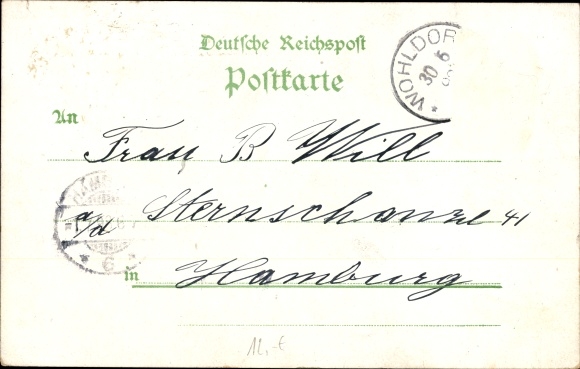 Deutsche Reichspost
Postkarte
WOHLDOR
30 6
An
Frau B Will
a/d Sternschanze 41
in Hamburg
12,-€